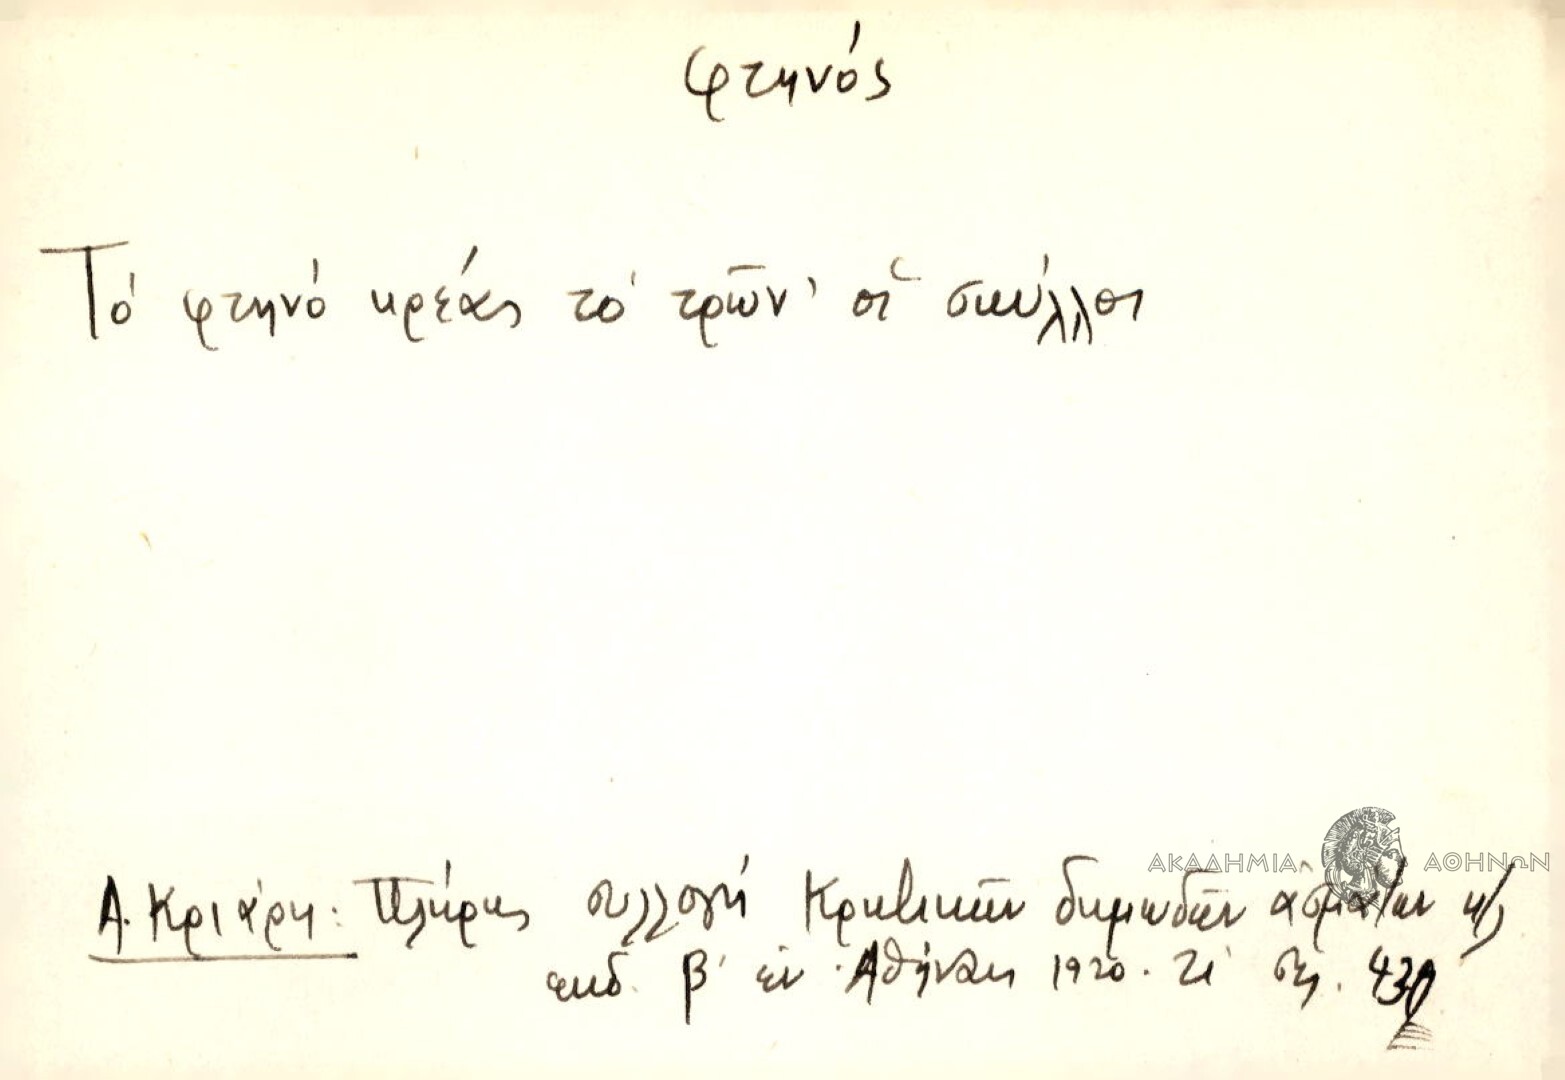 φτηνός
Τό φτηνό κρέας τό τρῶν' οἱ σκύλλοι
ΑΚΑΔΗΜΙΑ ΑΘΗΝΩΝ
Α. Κριάρη: Πλήρης συλλογή Κρητικῶν δημωδῶν ἀσμάτων κ/ς
ἐκδ. β' ἐν Ἀθήναις 1920. σελ. 430